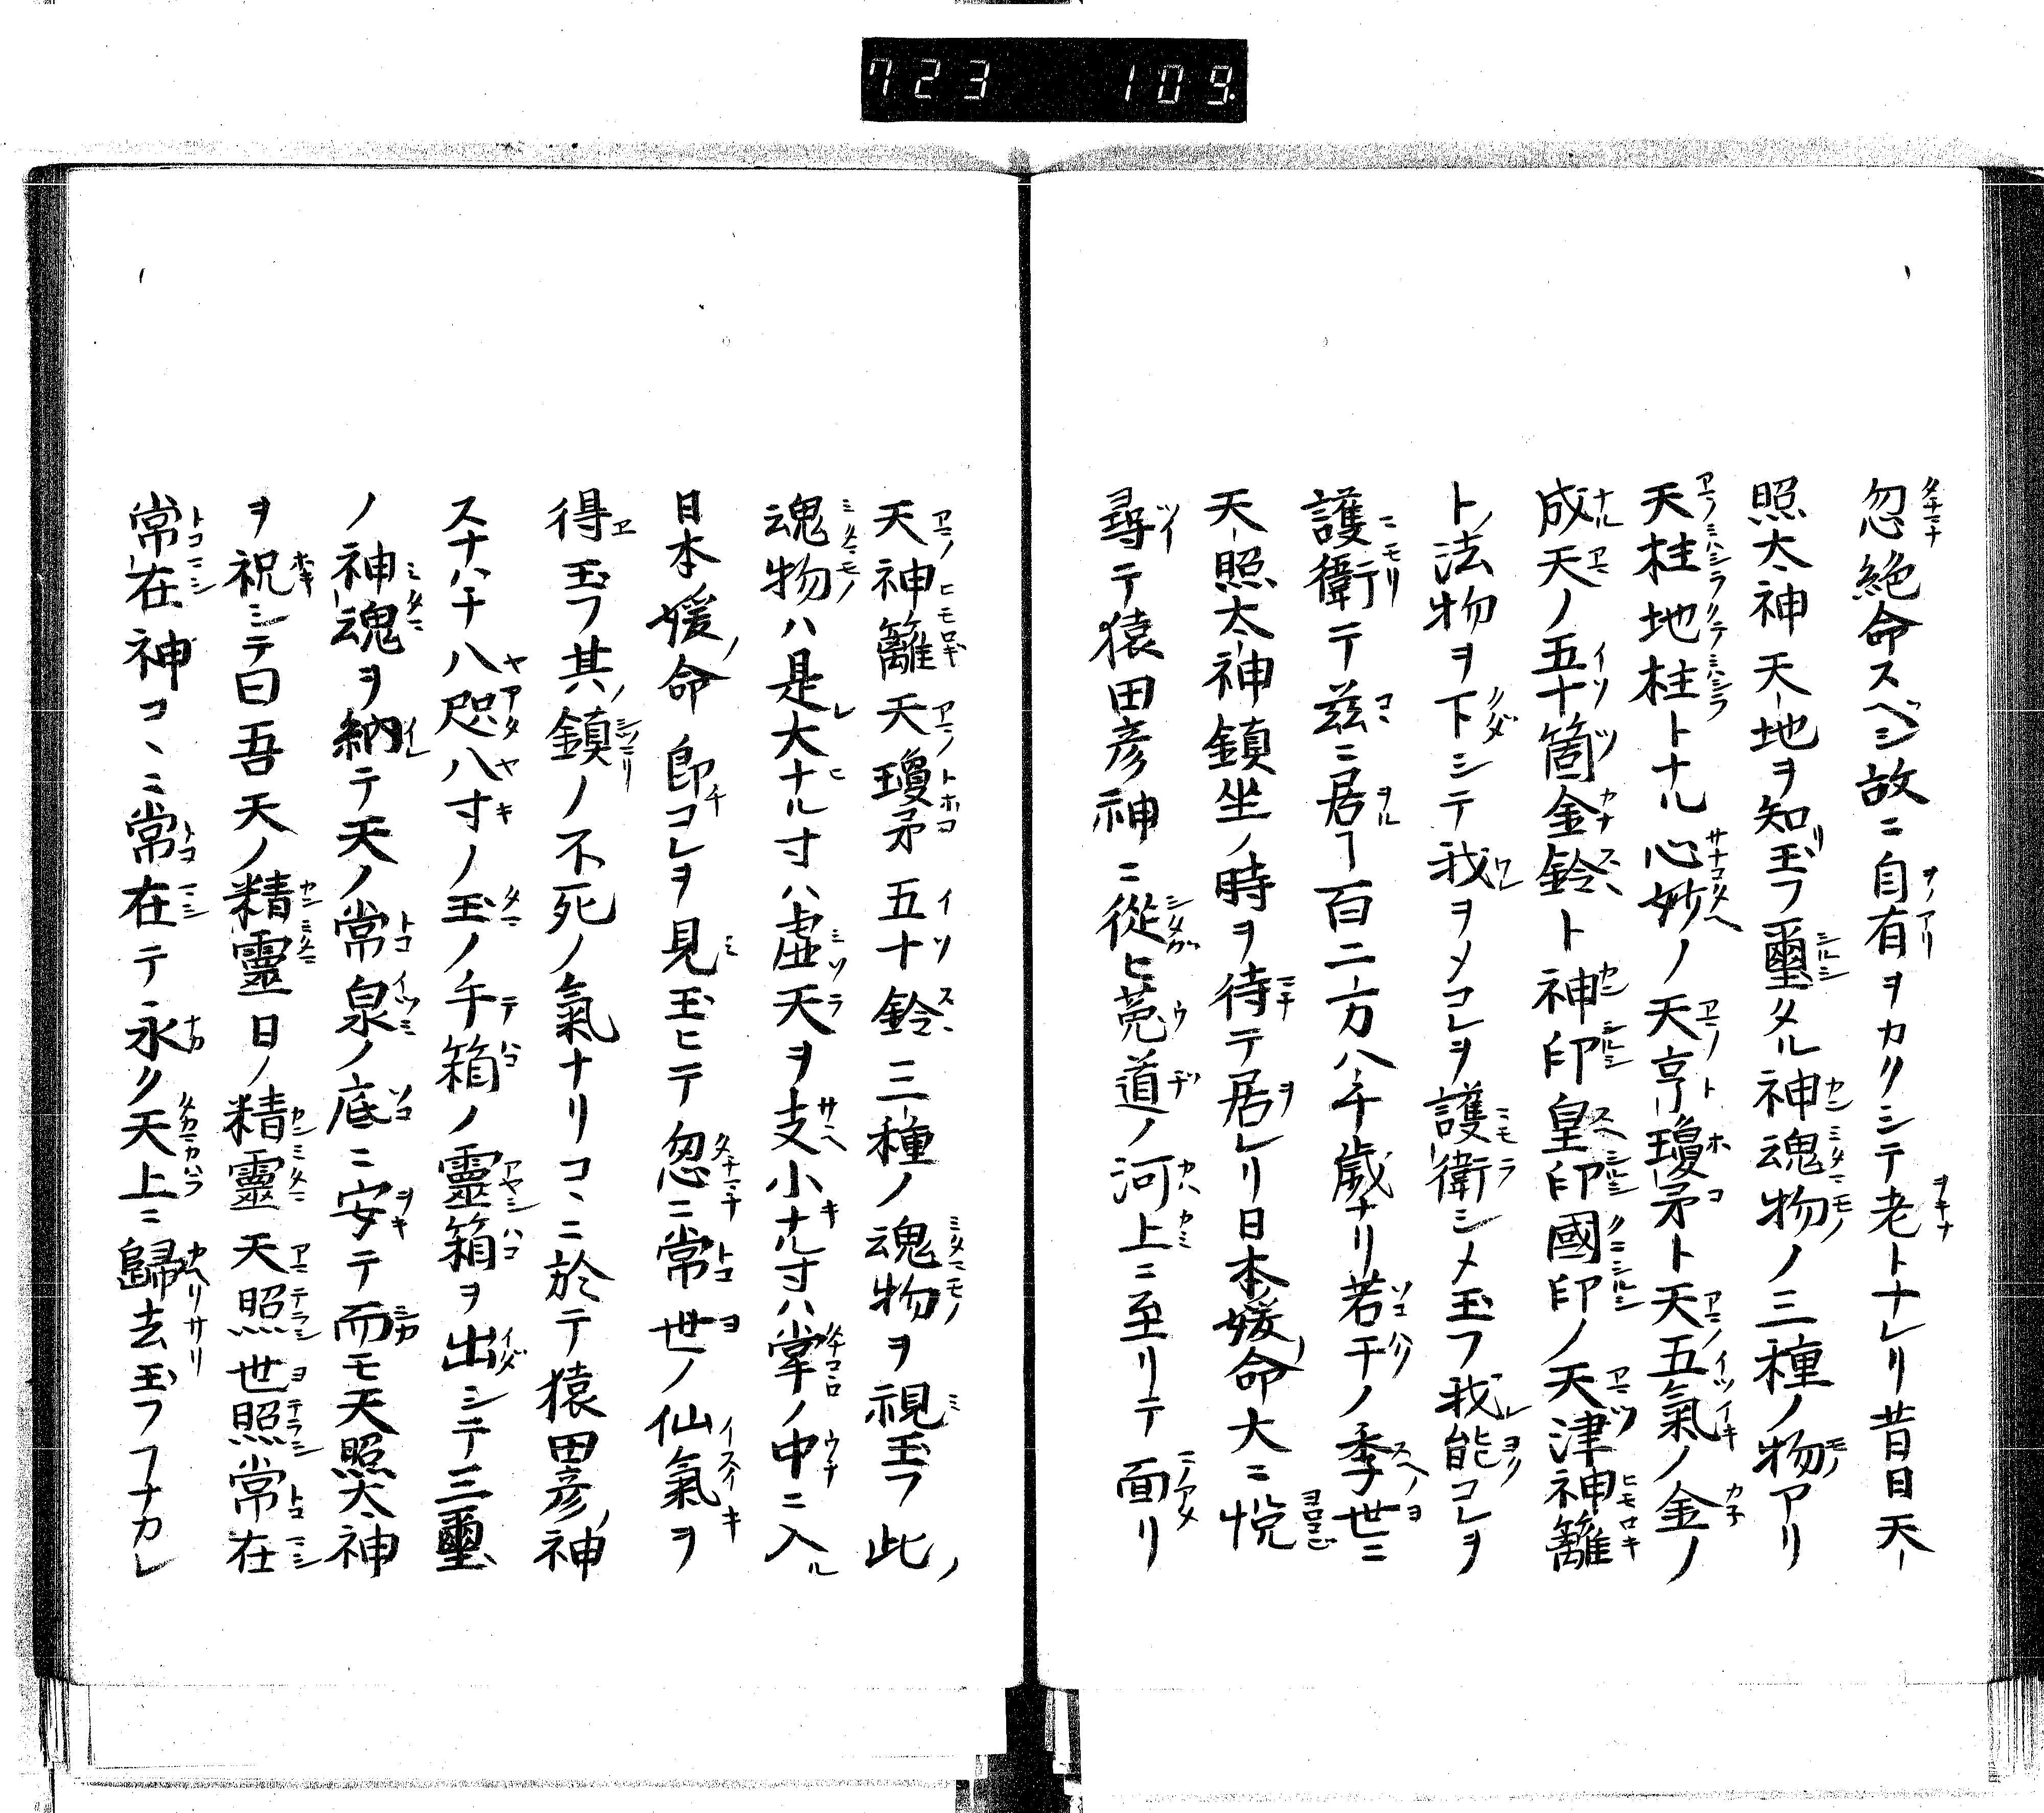 723 109.
忽絶命スベシ故ニ自有ヲカクシテ老トナレリ昔日天
照太神天地ヲ知玉フ璽タル神魂物ノ三種ノ物アリ
天柱地柱トナル心妙ノ天亨瓊矛ト天五氣ノ金ノ
成天ノ五十箇金鈴ト神印皇印國印ノ天津神籬
ト法物ヲ下シテ我ヲメコレヲ護衛シメ玉フ我能コレヲ
護衛テ茲ニ居ヿ百二万八千歳ナリ若干ノ季世ニ
天照太神鎮坐ノ時ヲ待テ居レリ日本媛命大ニ悦
尋テ猿田彦神ニ從ヒ菟道ノ河上ニ至リテ面リ
天神籬天瓊矛五十鈴三種ノ魂物ヲ視玉フ此
魂物ハ是大ナル寸ハ虚天ヲ支小ナル寸ハ掌ノ中ニ入
日本媛命即コレヲ見玉ヒテ忽ニ常世ノ仙氣ヲ
得玉フ其鎮ノ不死ノ氣ナリコヽニ於テ猿田彦神
スナハチ八咫八寸ノ玉ノ手箱ノ靈箱ヲ出シテ三璽
ノ神魂ヲ納テ天ノ常泉ノ底ニ安テ而モ天照太神
ヲ祝シテ曰吾天ノ精靈日ノ精靈天照世照常在
常在神コヽニ常在テ永ク天上ニ歸去玉フヿナカレ